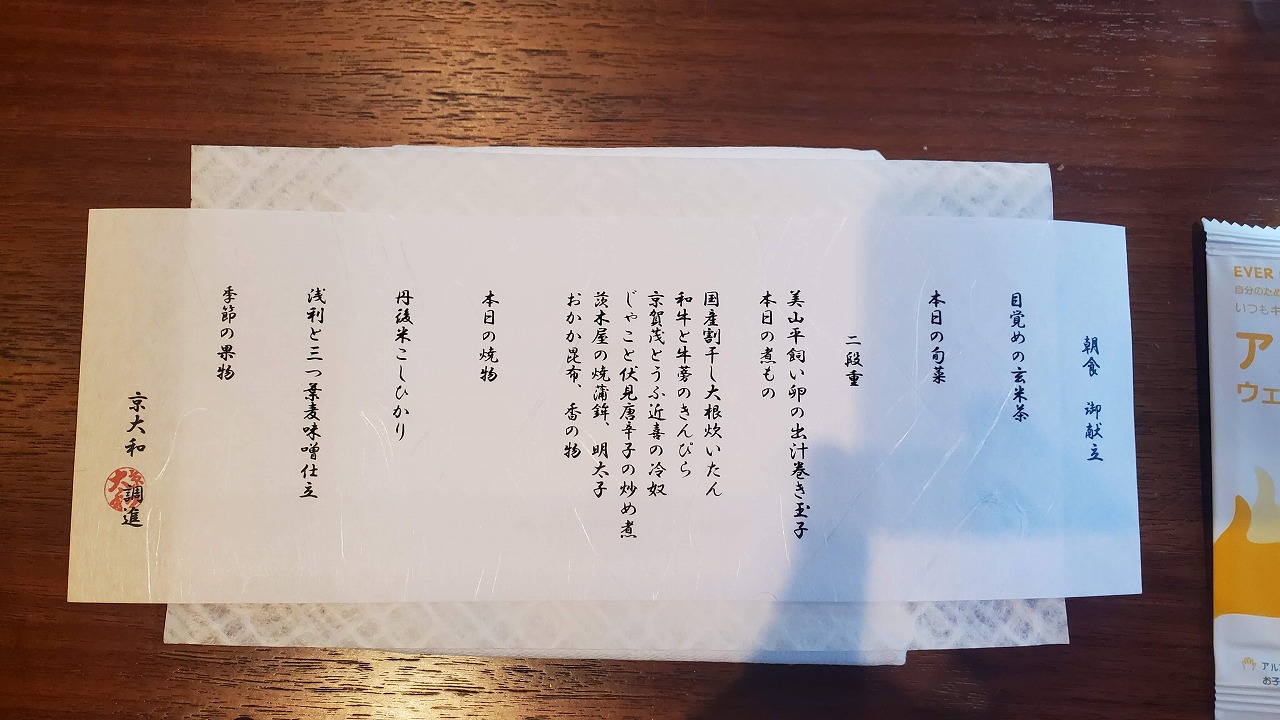 朝食　御献立
目覚めの玄米茶
本日の旬菜
二段重
美山平飼い卵の出汁巻き玉子
本日の煮もの
国産割干し大根炊いたん
和牛と牛蒡のきんぴら
京賀茂とうふ近喜の冷奴
じゃこと伏見唐辛子の炒め煮
茨木屋の焼蒲鉾、明太子
おかか昆布、香の物
本日の焼物
丹後米こしひかり
浅利と三つ葉麦味噌仕立
季節の果物
京大和　調進
EVER
自分のため
いつもキ
ア
ウェ
アル
お子